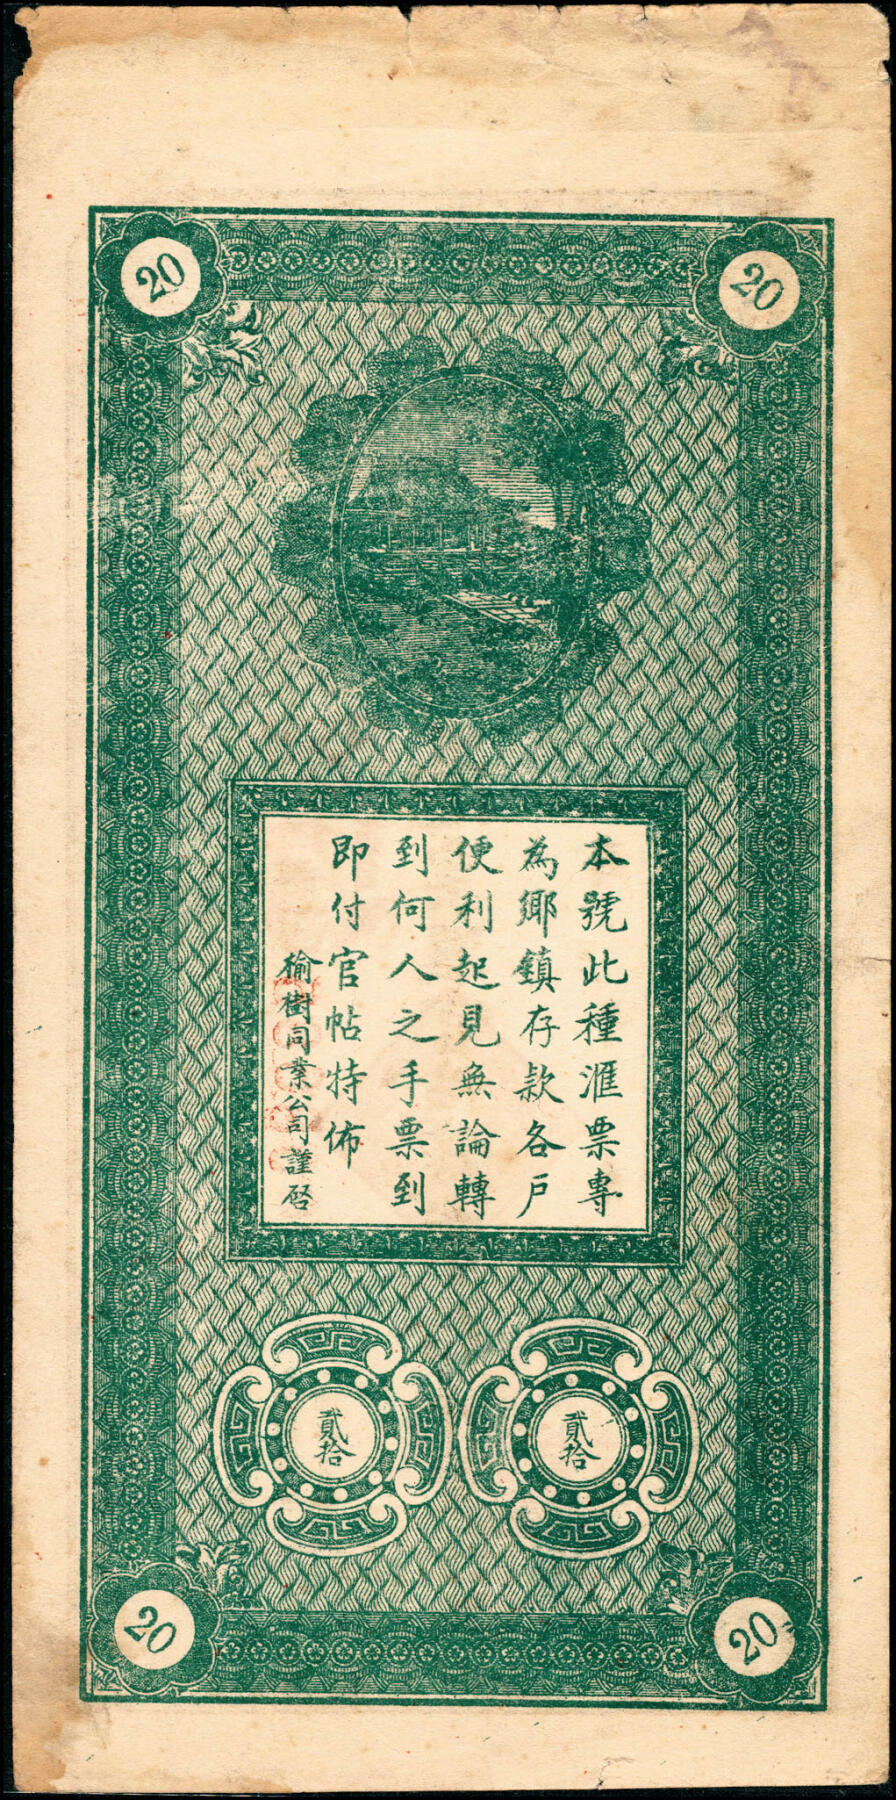 20
20
本號此種滙票專
為鄉鎮存款各戶
便利起見無論轉
到何人之手票到
即付官帖特佈
榆樹同業公司謹啓
貳拾
貳拾
20
20